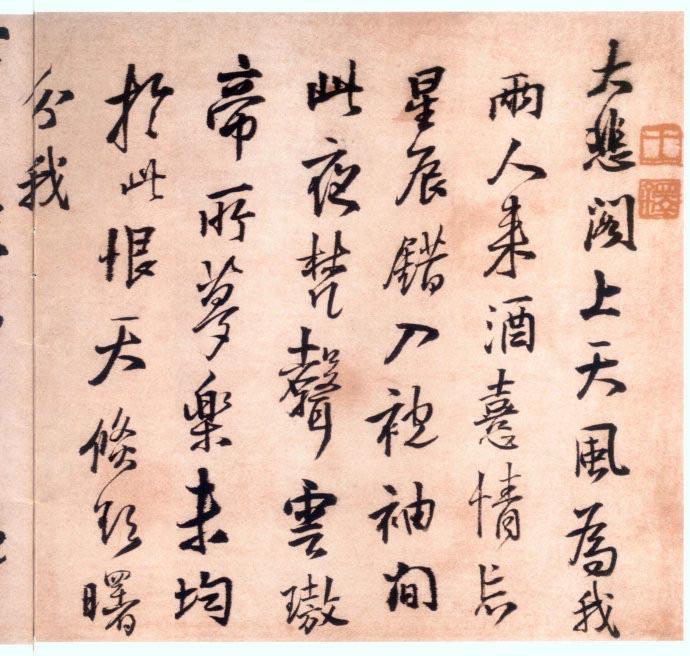 大悲閣上天風為我
兩人來酒憙情忘
星辰錯入袍袖間
此夜梵聲雲璈
帝所夢樂未均
於此恨天倏欲曙
分我
王鐸